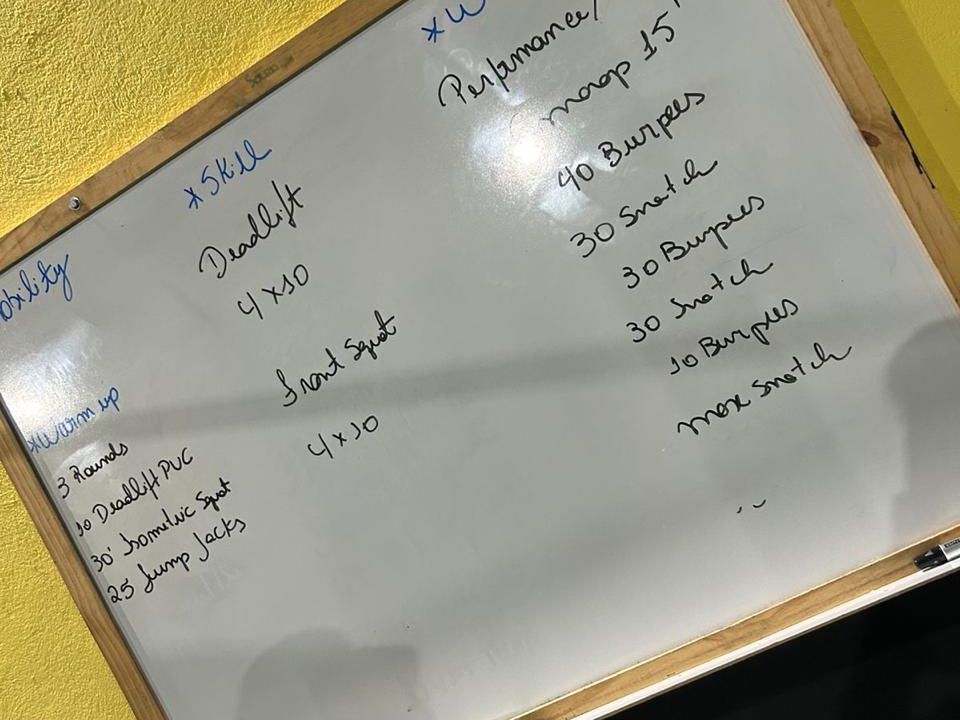 obility
*Warm up
3 Rounds
10 Deadlift PVC
30' Isometric Squat
25 Jump Jacks
*Skill
Deadlift
4 x 10
Front Squat
4 x 10
*W
Performance/
amrap 15'
40 Burpees
30 Snatch
30 Burpees
30 Snatch
10 Burpees
max Snatch